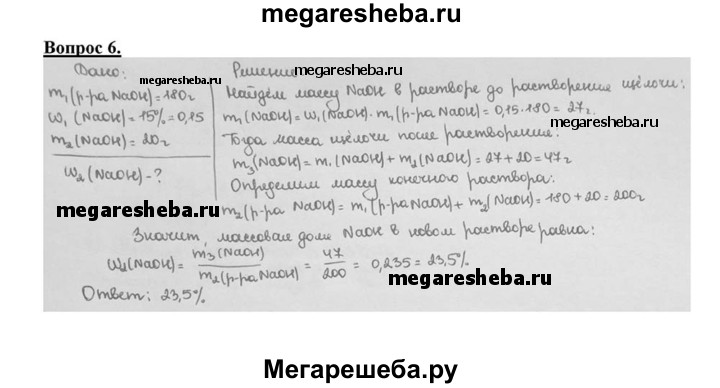 megaresheba.ru
Вопрос 6.
Дано:
m₁(р-ра NaOH)=180г
ω₁(NaOH)=15%=0,15
m₂(NaOH)=20г
ω₂(NaOH)-?
Решение
megaresheba.ru
megaresheba.ru
Найдём массу NaOH в растворе до растворения щёлочи:
m₁(NaOH)=ω₁(NaOH)·m₁(р-ра NaOH)=0,15·180=27г.
megaresheba.ru
Тогда масса щёлочи после растворения:
m₃(NaOH)=m₁(NaOH)+m₂(NaOH)=27+20=47г
Определим массу конечного раствора:
megaresheba.ru
m₂(р-ра NaOH)=m₁(р-ра NaOH)+m₂(NaOH)=180+20=200г
Значит, массовая доля NaOH в новом растворе равна:
ω₂(NaOH)=m₃(NaOH)/m₂(р-ра NaOH)=47/200=0,235=23,5%
megaresheba.ru
Ответ: 23,5%
Мегарешеба.ру